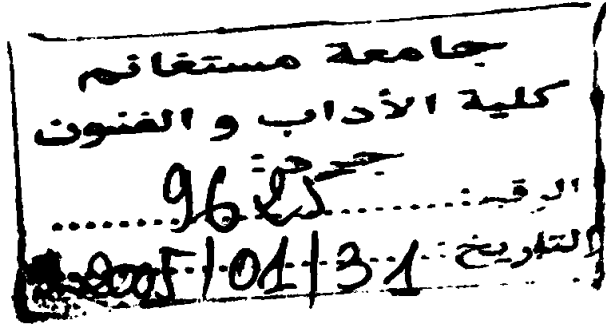 جامعة مستغانم
كلية الأداب و الفنون
الرقم: 96
التاريخ: 2005/01/31